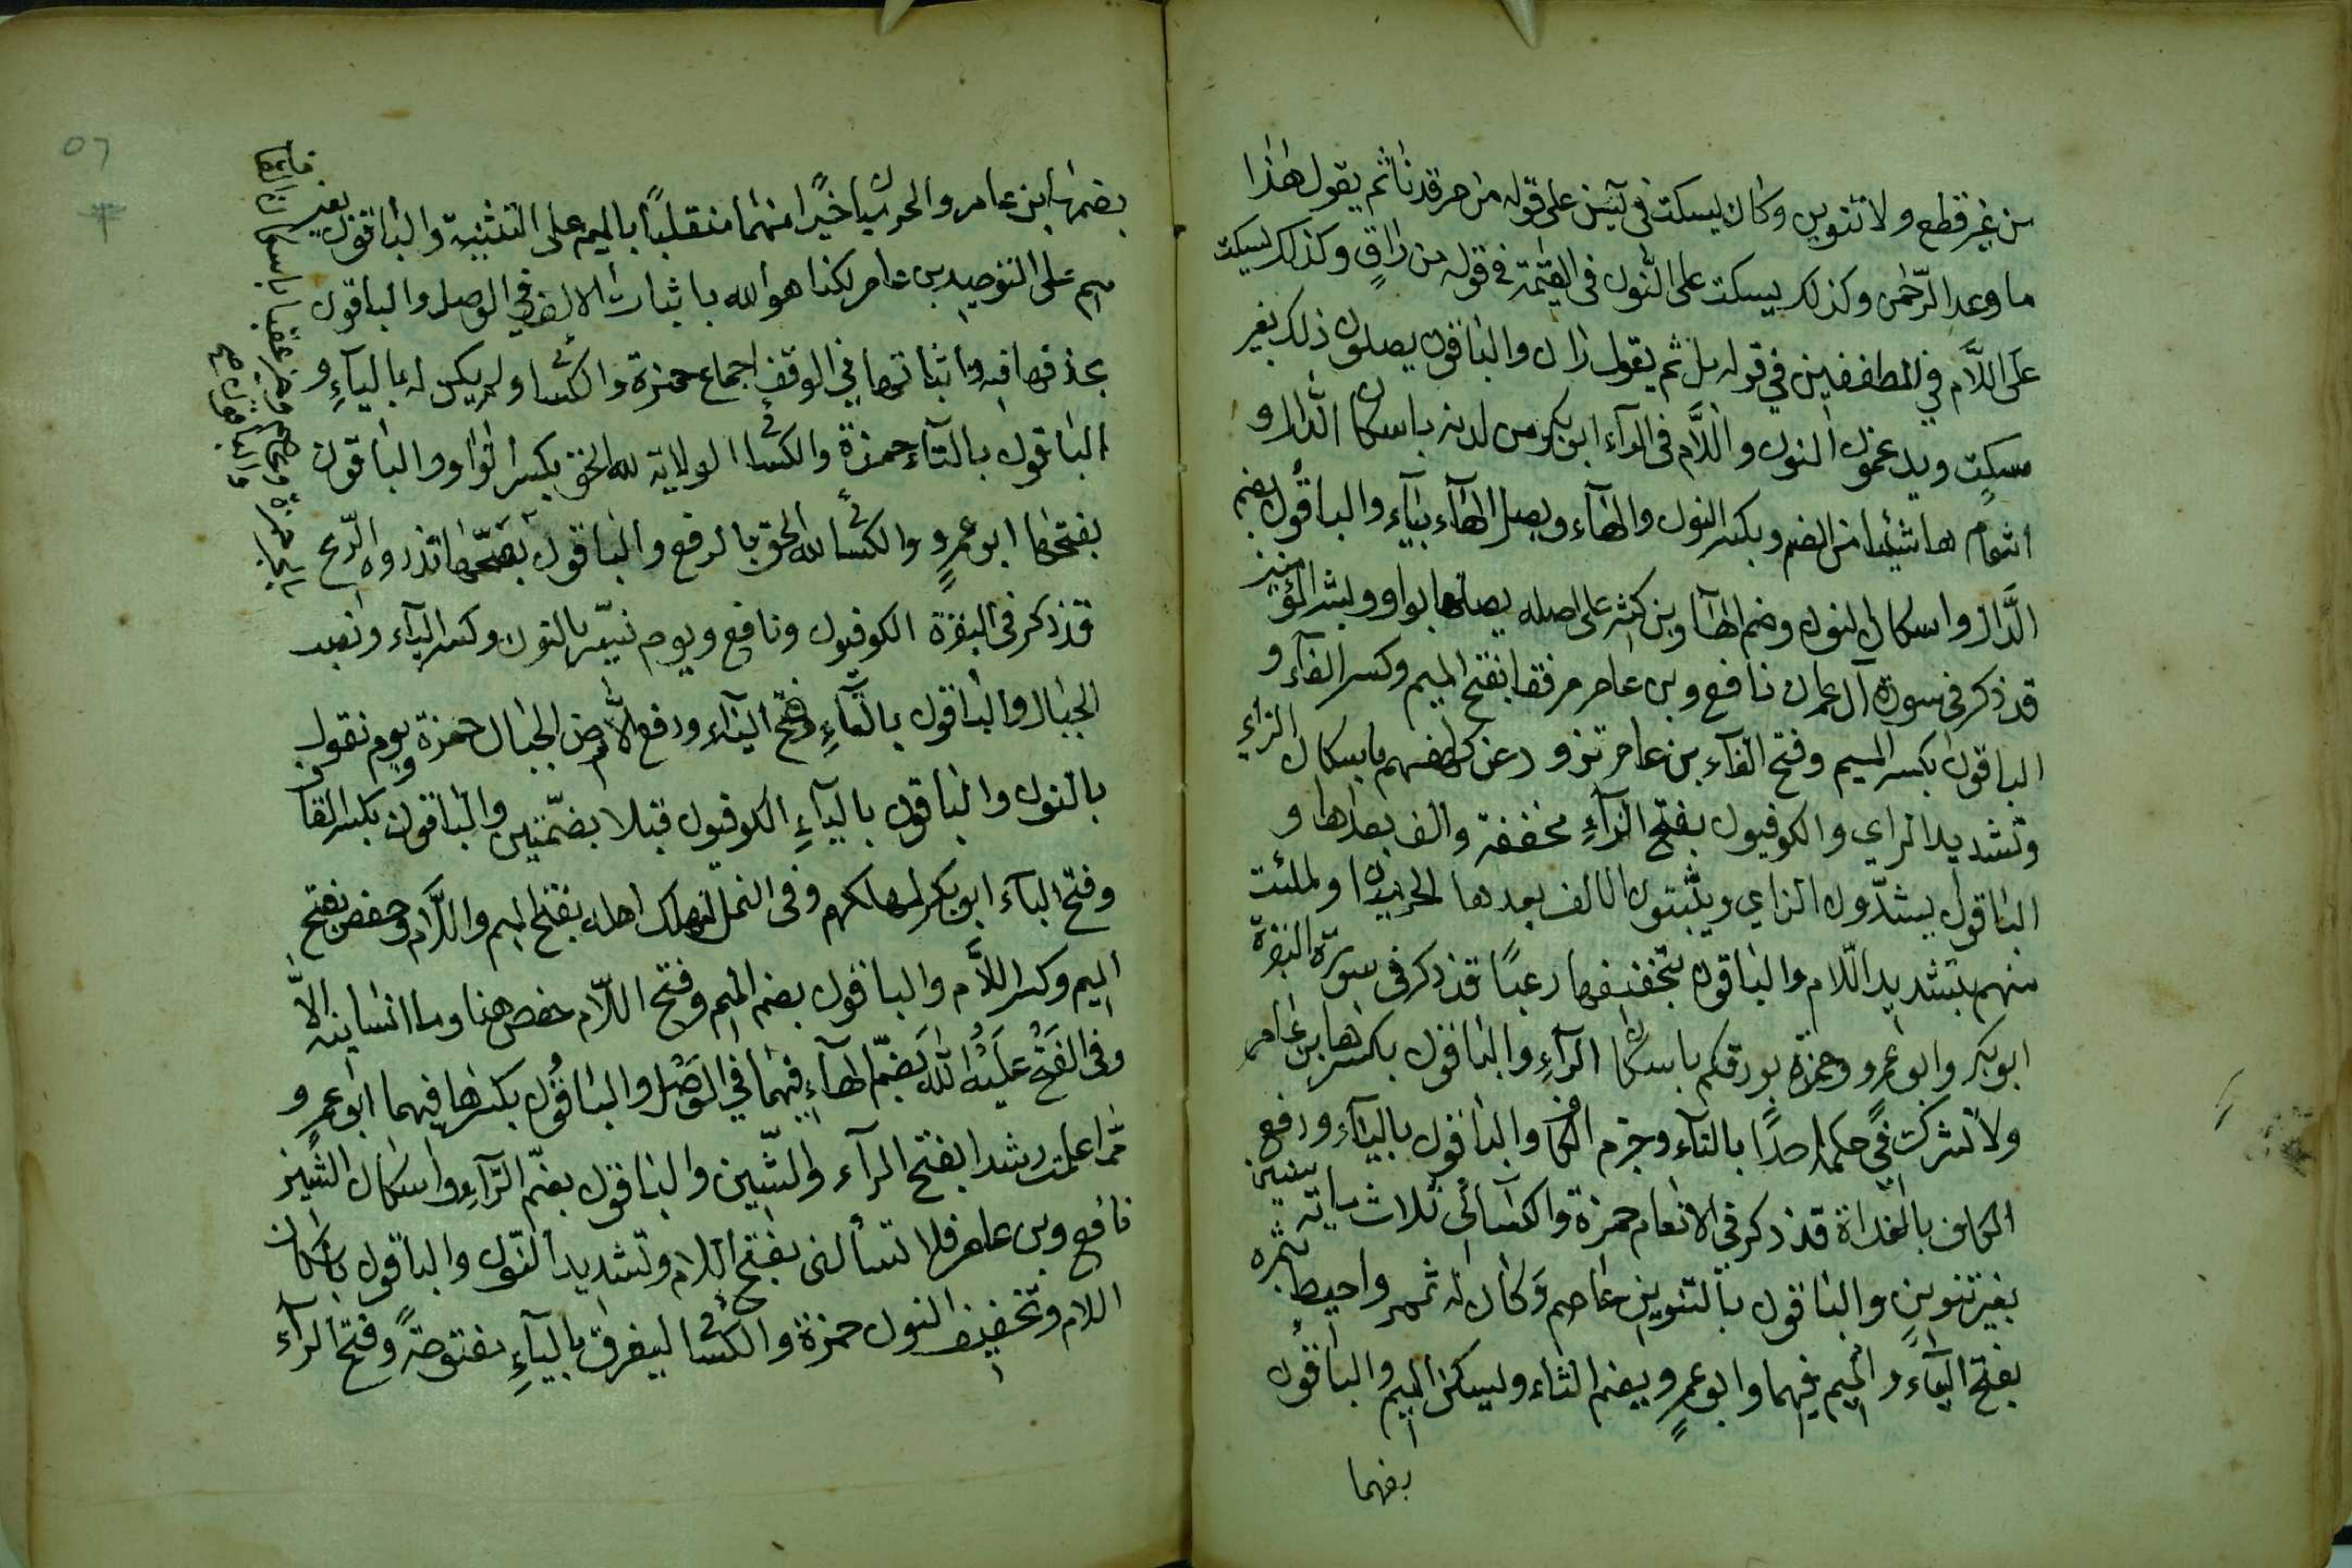 من غير قطع ولا تنوين وكان يسكت في يٓسٓ على قوله من مرقدنا ثم يقول هذا
ما وعد الرّحمن وكذلك يسكت على النّون في القيٰمة في قوله من راقٍ وكذلك يسكت
على اللّام في المطففين في قوله بل ثم يقول ران والباقون يصلون ذلك بغير
سكتٍ ويدغمون النون واللّام في الرآء ابو بكر من لدنه باسكان الدّال و
اشمامها شيئا من الضم وبكسر النون والهآء ويصل الهآء بيآء والباقون بضم
الدّال واسكان النون وضم الهآء وبن كثير على اصله يصلها بواو ويبشر المؤمنين
قد ذكر في سورة آل عمران نافع وبن عامر مرفقا بفتح الميم وكسر الفآء و
الباقون بكسر الميم وفتح الفآء بن عامر تزور عن كهفهم باسكان الزاي
وتشديد الراي والكوفيون بفتح الزآءِ مخففة والف بعدها و
الباقون يشدّدون الزاي ويثبتون الالف بعدها الحرميان ولملئت
منهم بتشديد اللّام والباقون بتخفيفها رعبًا قد ذكر في سورة البقرة
ابو بكر وابو عمرو وحمزة بورقكم باسكان الرآءِ والباقون بكسرها بن عامر
ولا تشرك في حكمه احدًا بالتآء وجزم الكاف والباقون باليآء ورفع
الكاف بالغداة قد ذكر في الانعام حمزة والكسآئي ثلاث مائة سنين
بغير تنوين والباقون بالتنوين عاصم وكان له ثمر واحيط بثمره
بفتح الثآء والميم فيهما وابو عمرٍو بضم الثاء ويسكن الميم والباقون
بضمها
بضمها ابن عامر والحرميان خيرًا منهما منقلبًا بالميم على التثنية والباقون بغير
ميم على التوحيد بن عامر لكنا هو الله باثبات الالف في الوصل والباقون
بحذفها فيه واثباتها في الوقف اجماع حمزة والكسائي ولم يكن له باليآءِ و
الباقون بالتآء حمزة والكسائي الولاية لله الحق بكسر الواو والباقون
بفتحها ابو عمرٍو والكسائي لله الحق بالرفع والباقون بفتحها تذروه الرّيح
قد ذكر في البقرة الكوفيون ونافع ويوم نسيّر بالنون وكسر اليآء ونصب
الجبال والباقون بالتّآءِ وفتح اليآء ورفع الجبال حمزة ويوم نقول
بالنون والباقون باليآءِ الكوفيون قبلا بضمّتين والباقون بكسر القاف
وفتح البآء ابو بكر لمهلكهم وفي النمل مهلك اهله بفتح الميم واللّام وحفص بفتح
الميم وكسر اللّام والباقون بضم الميم وفتح اللّام حفص هنا وما انسانيه الّا
وفي الفتح عليه الله بضمّ الهآءِ فيهما في الوصل والباقون بكسرها فيهما ابو عمرو
ممّا علمت رشدا بفتح الرآء والشّين والباقون بضمّ الرّآءِ واسكان الشّين
نافع وبن عامر فلا تسألني بفتح اللام وتشديد النّون والباقون باسكان
اللام وتخفيف النون حمزة والكسائي ليغرق باليآءِ مفتوحة وفتح الرآء